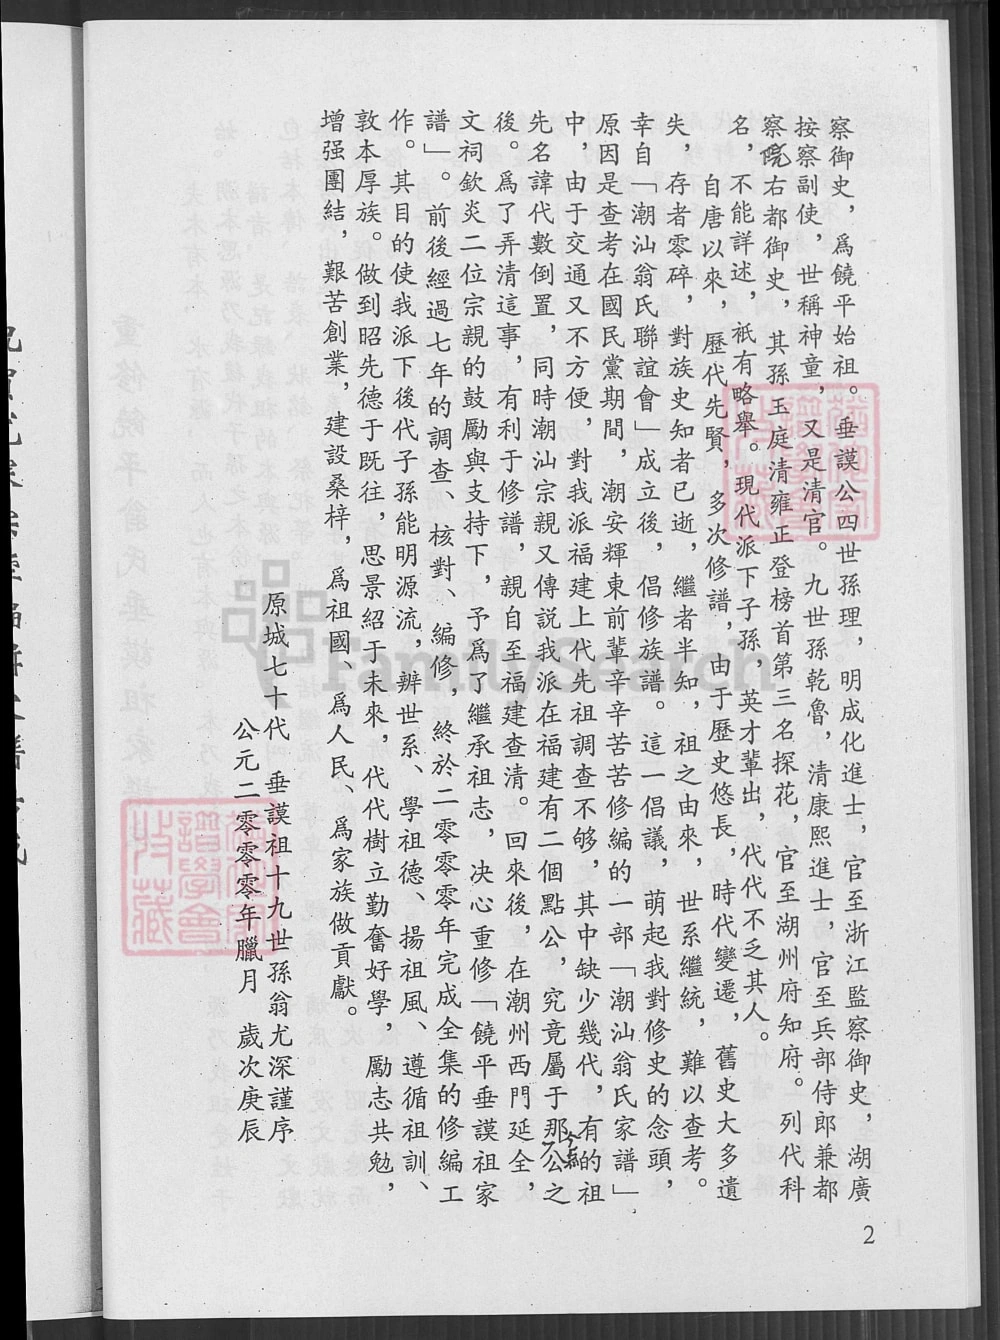 察御史，爲饒平始祖。垂謨公四世孫理，明成化進士，官至浙江監察御史，湖廣
按察副使，世稱神童，又是清官。九世孫乾魯，清康熙進士，官至兵部侍郎兼都
察院右都御史，其孫玉庭清雍正登榜首第三名探花，官至湖州府知府。列代科
名，不能詳述，祇有略舉。現代派下子孫，英才輩出，代代不乏其人。
自唐以來，歷代先賢，多次修譜，由于歷史悠長，時代變遷，舊史大多遺
失，存者零碎，對族史知者已逝，繼者半知，祖之由來，世系繼統，難以查考。
幸自「潮汕翁氏聯誼會」成立後，倡修族譜。這一倡議，萌起我對修史的念頭，
原因是查考在國民黨期間，潮安輝東前輩辛辛苦苦修編的一部「潮汕翁氏家譜」
中，由于交通又不方便，對我派福建上代先祖調查不够，其中缺少幾代，有的祖
先名諱代數倒置，同時潮汕宗親又傳説我派在福建有二個點公，究竟屬于那公之
後。爲了弄清這事，有利于修譜，親自至福建查清。回來後，在潮州西門延全，
文祠欽炎二位宗親的鼓勵與支持下，予爲了繼承祖志，决心重修「饒平垂謨祖家
譜」。前後經過七年的調查、核對、編修，終於二零零零年完成全集的修編工
作。其目的使我派下後代子孫能明源流，辨世系、學祖德、揚祖風、遵循祖訓、
敦本厚族。做到昭先德于既往，思景紹于未來，代代樹立勤奮好學，勵志共勉，
增强團結，艱苦創業，建設桑梓，爲祖國、爲人民、爲家族做貢獻。
原城七十代　垂謨祖十九世孫翁尤深謹序
公元二零零零年臘月　歲次庚辰
2
FamilySearch